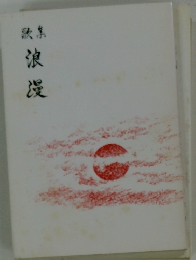 歌集
浪漫